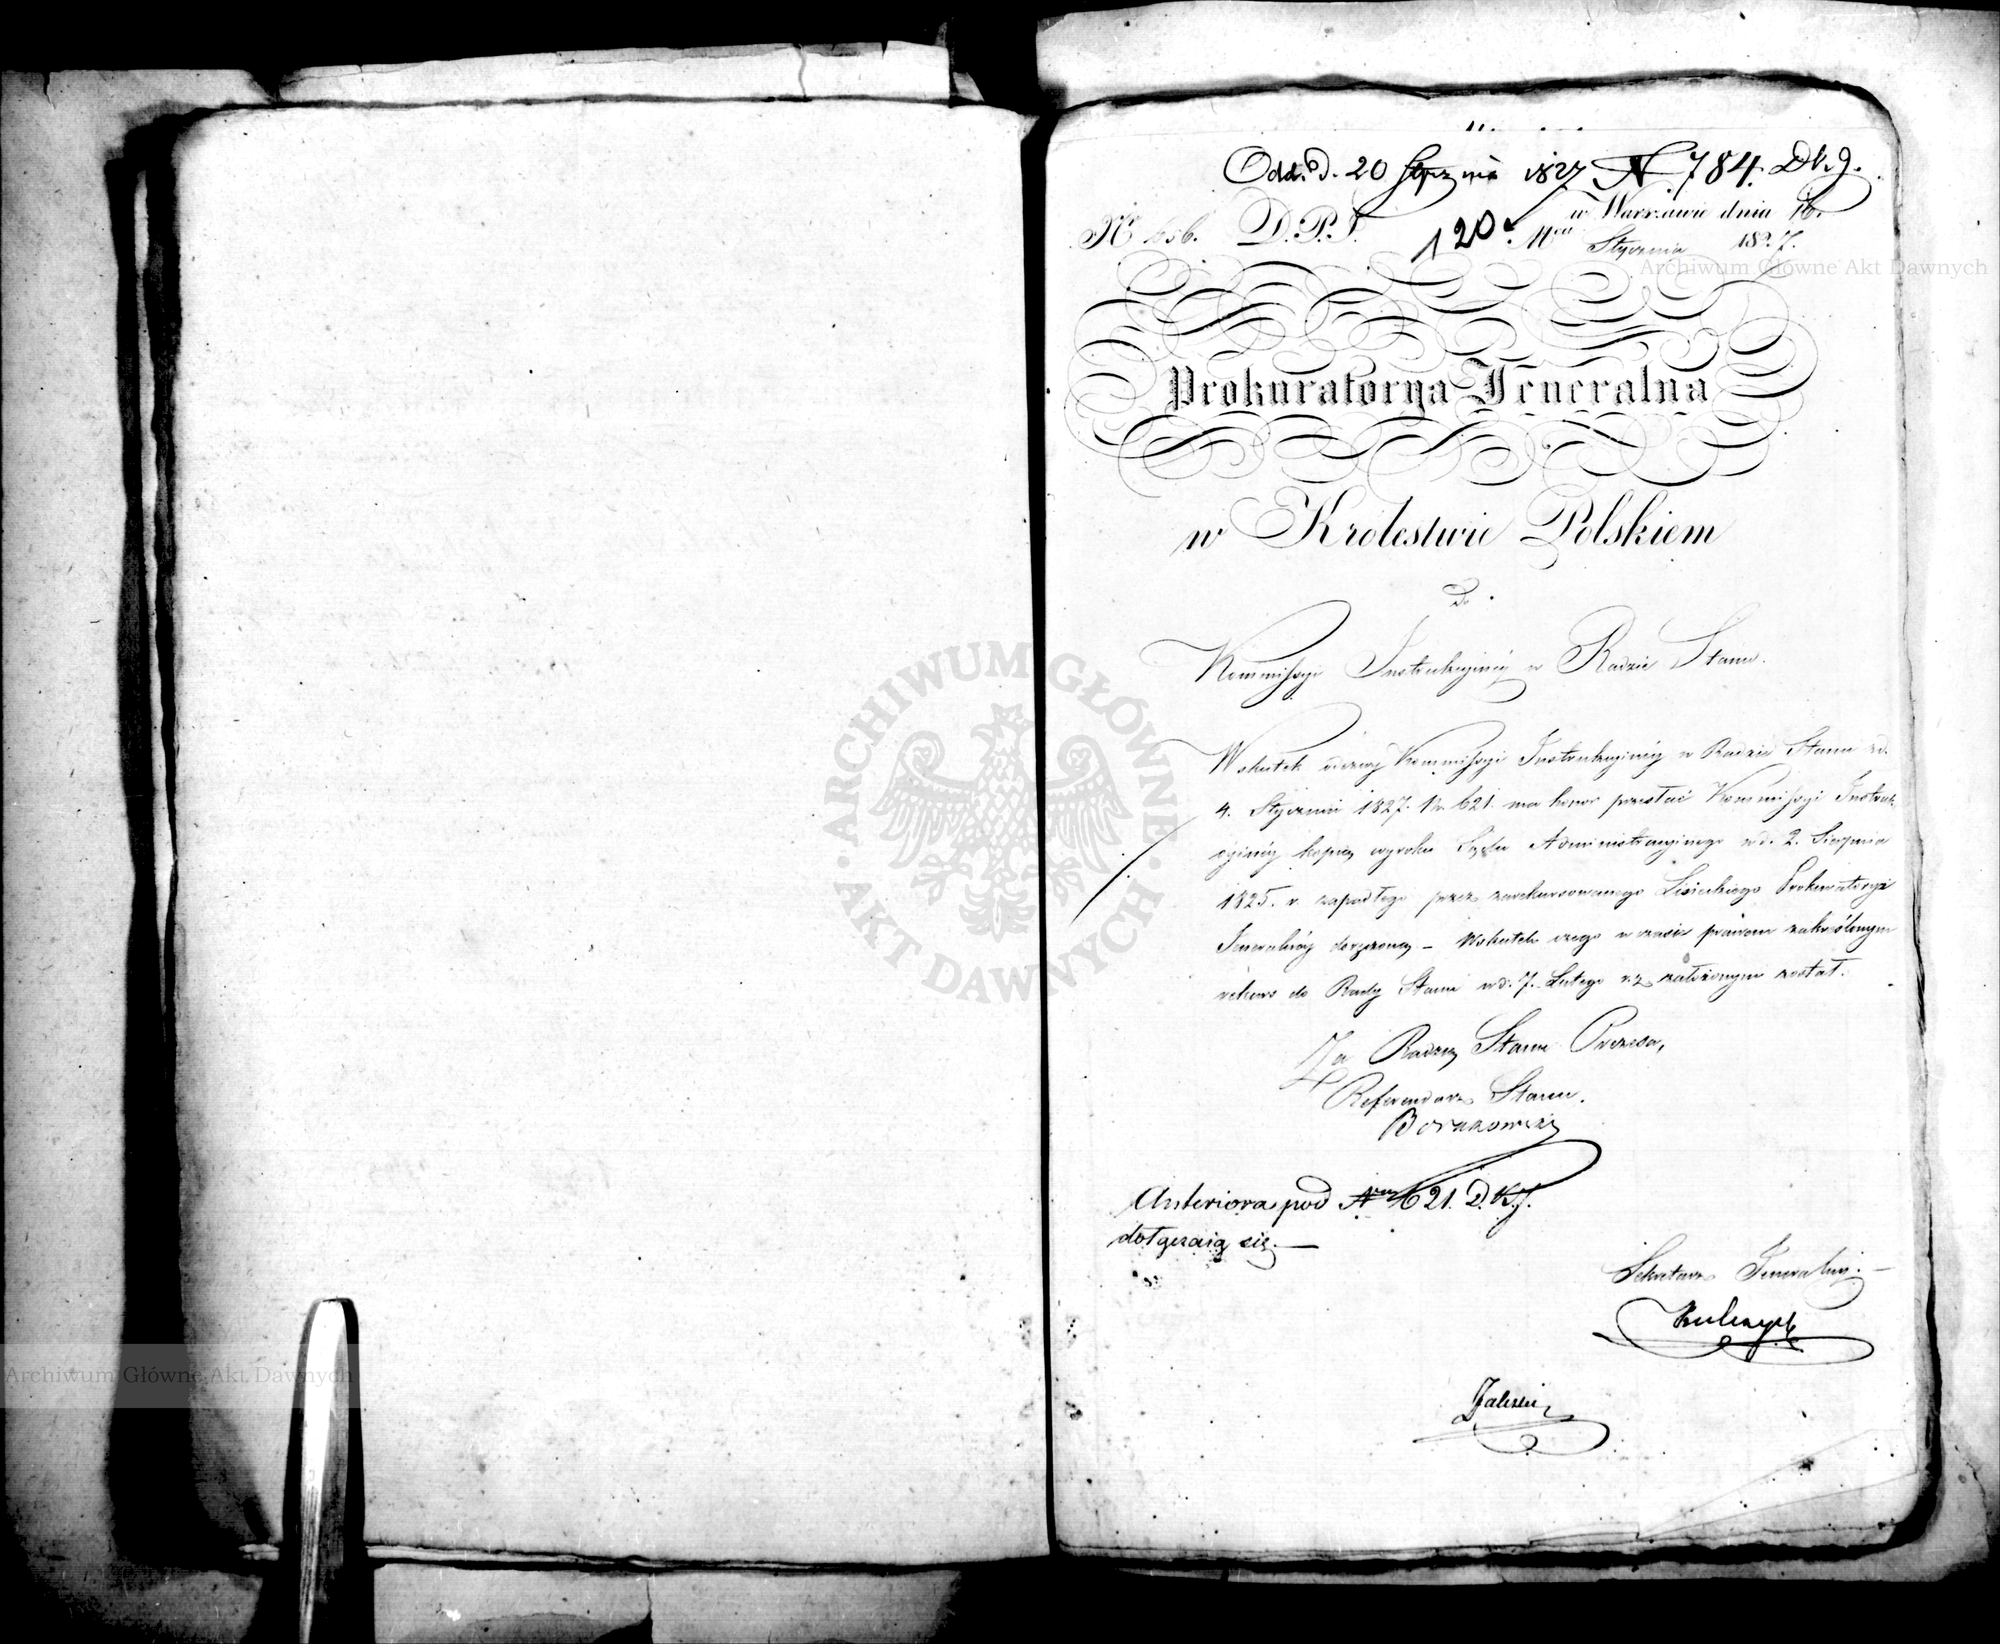 Odd. d. 20 Stycznia 1827 N 784. D.K.J.
w Warszawie dnia 16.
Nr 656. D.P.J. 120. Stycznia 1827.
Prokuratorya Jeneralna
w Królestwie Polskiem
do
Kommissyi Instrukcyinéy w Radzie Stanu.
Wskutek odezwy Kommissyi Instrukcyinéy w Radzie Stanu z d.
4. Stycznia 1827. Nr. 621. ma honor przesłać Kommissyi Instruk
cyinéy kopią wyroku Sądu Administracyinego w d. 2. Sierpnia
1825. r. zapadłego przez zarekursowanego Lisieckiego Prokuratoryi
Jeneralnéy doręczoną – Wskutek czego w czasie prawem zakreślonym
rekurs do Rady Stanu w d. 7. Lutego r. z. założonym został.
Za Radzcę Stanu Prezesa,
Referendarz Stanu.
Borakowski
Anteriora pod Nrem 621. D.K.J.
dołączaią się. —
Sekretarz Jeneralny. —
Kulczycki
Zaleski
ARCHIWUM GŁÓWNE AKT DAWNYCH
Archiwum Główne Akt Dawnych
Archiwum Główne Akt Dawnych